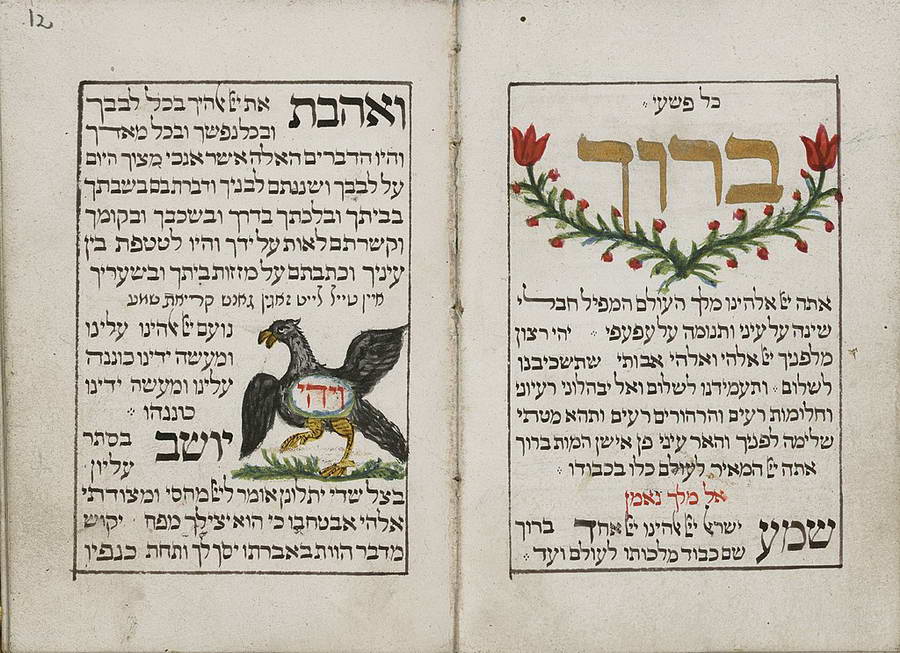 כל פשעי
ברוך
אתה יי אלהינו מלך העולם המפיל חבלי
שינה על עיני ותנומה על עפעפי יהי רצון
מלפניך יי אלהי ואלהי אבותי שתשכיבנו
לשלום ותעמידנו לשלום ואל יבהלוני רעיוני
וחלומות רעים והרהורים רעים ותהא מטתי
שלימה לפניך והאר עיני פן אישן המות ברוך
אתה יי המאיר לעולם כלו בכבודו
אל מלך נאמן
שמע ישראל יי אלהינו יי אחד ברוך
שם כבוד מלכותו לעולם ועד
12
ואהבת את יי אלהיך בכל לבבך
ובכל נפשך ובכל מאדך
והיו הדברים האלה אשר אנכי מצוך היום
על לבבך ושננתם לבניך ודברת בם בשבתך
בביתך ובלכתך בדרך ובשכבך ובקומך
וקשרתם לאות על ידך והיו לטטפת בין
עיניך וכתבתם על מזזות ביתך ובשעריך
איין טייל לייט זאגין גאנט קריאת שמע
ויהי
נועם יי אלהינו עלינו
ומעשה ידינו כוננה
עלינו ומעשה ידינו
כוננהו
יושב בסתר
עליון
בצל שדי יתלונן אומר ליי מחסי ומצודתי
אלהי אבטח בו כי הוא יצילך מפח יקוש
מדבר הוות באברתו יסך לך ותחת כנפיו